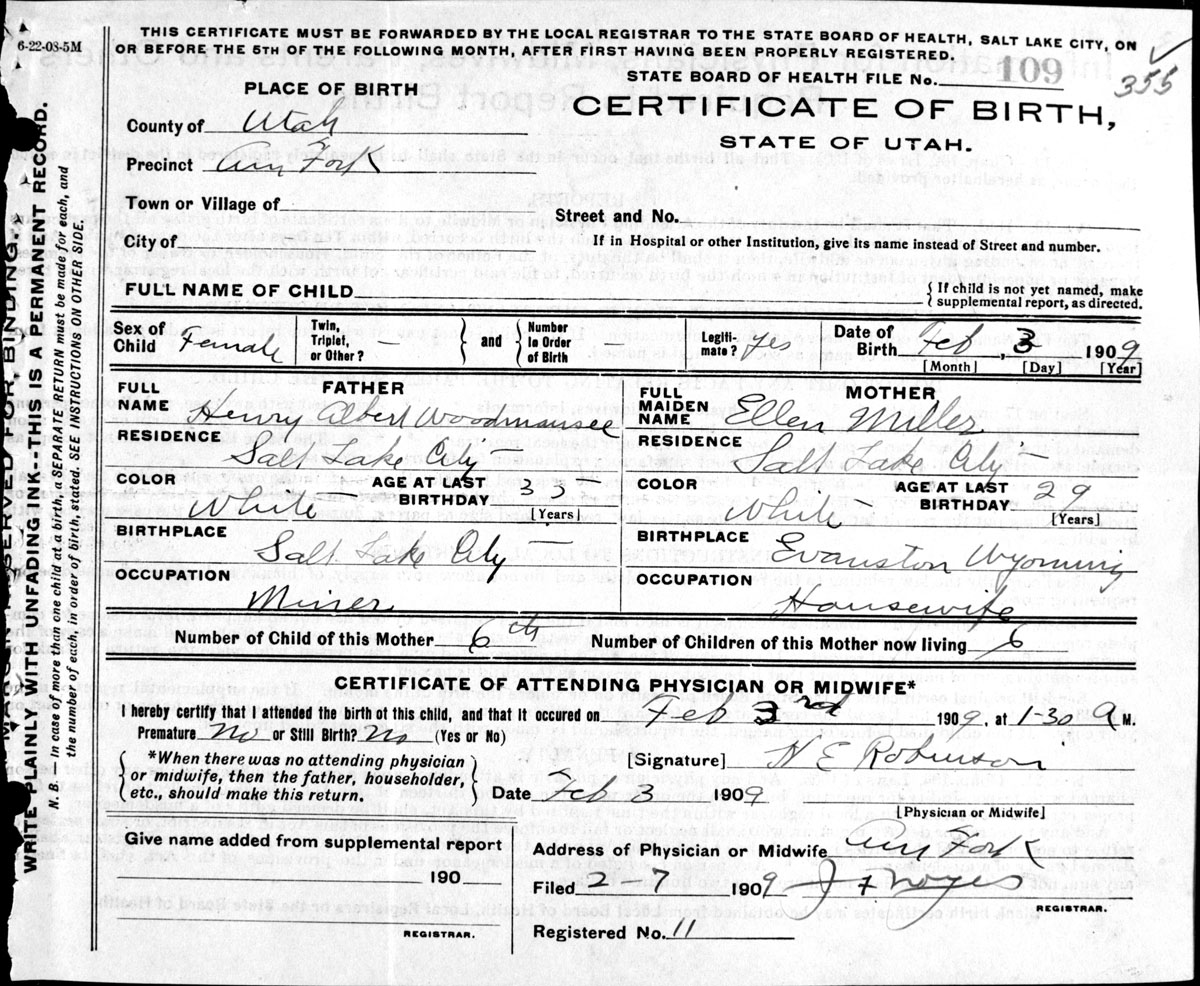 6-22-08-5M
THIS CERTIFICATE MUST BE FORWARDED BY THE LOCAL REGISTRAR TO THE STATE BOARD OF HEALTH, SALT LAKE CITY, ON
OR BEFORE THE 5TH OF THE FOLLOWING MONTH, AFTER FIRST HAVING BEEN PROPERLY REGISTERED.
STATE BOARD OF HEALTH FILE No. 109
355
PLACE OF BIRTH
CERTIFICATE OF BIRTH,
STATE OF UTAH.
County of Utah
Precinct Am Fork
Town or Village of
Street and No.
City of
If in Hospital or other Institution, give its name instead of Street and number.
FULL NAME OF CHILD
{ If child is not yet named, make
supplemental report, as directed.
Sex of Child Female
Twin, Triplet, or Other? —
} and {
Number in Order of Birth
Legiti-mate? Yes
Date of Birth Feb, 3 1909
[Month] [Day] [Year]
FATHER
FULL NAME Henry Albert Woodmansee
RESIDENCE Salt Lake City —
COLOR White
AGE AT LAST BIRTHDAY 33
[Years]
BIRTHPLACE Salt Lake City —
OCCUPATION Miner
MOTHER
FULL MAIDEN NAME Ellen Miller
RESIDENCE Salt Lake City
COLOR White
AGE AT LAST BIRTHDAY 29
[Years]
BIRTHPLACE Evanston Wyoming
OCCUPATION Housewife
Number of Child of this Mother 6th Number of Children of this Mother now living 6
CERTIFICATE OF ATTENDING PHYSICIAN OR MIDWIFE*
I hereby certify that I attended the birth of this child, and that it occured on Feb 3rd 1909, at 1-30 a M.
Premature No or Still Birth? No (Yes or No)
*When there was no attending physician
or midwife, then the father, householder,
etc., should make this return.
[Signature] N E Robinson
Date Feb 3 1909
[Physician or Midwife]
Give name added from supplemental report
190
REGISTRAR.
Address of Physician or Midwife Am Fork
Filed 2 7 1909 J F Noyes
REGISTRAR.
Registered No. 11
MARGIN RESERVED FOR BINDING.
WRITE PLAINLY WITH UNFADING INK--THIS IS A PERMANENT RECORD.
N. B. In case of more than one child at a birth a SEPARATE RETURN must be made for each, and
the number of each, in order of birth, stated. SEE INSTRUCTIONS ON OTHER SIDE.